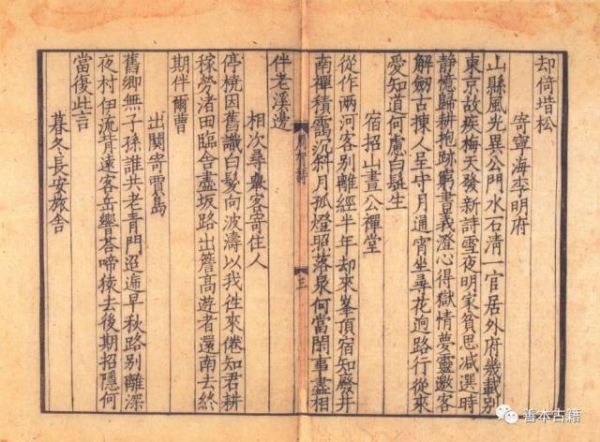 却倚堦松
寄寧海李明府
山縣風光異公門水石清一官居外府幾載別
東京故疾梅天發新詩雪夜明家貧思減選時
静憶歸耕抱跡窮書義澄心得獄情夢靈邀客
解劔古揀人呈守月通宵坐尋花迥路行從來
愛知道何慮白髭生
宿招山晝公禪堂
從作兩河客別離經半年却來峯頂宿知廢井
南禪積靄沉斜月孤燈照落泉何當閑事盡相
周賀詩
三
伴老溪邊
相次尋舉客寄住人
停橈因舊識白髮向波濤以我徃來倦知君耕
稼勞渚田臨舍盡坂路出簷高遊者還南去終
期伴爾曹
出關寄賈島
舊鄉無子孫誰共老青門迢遞早秋路別離深
夜村伊流背遠客岳響荅啼猿去後期招隱何
當復此言
暮冬長安旅舍
善本古籍